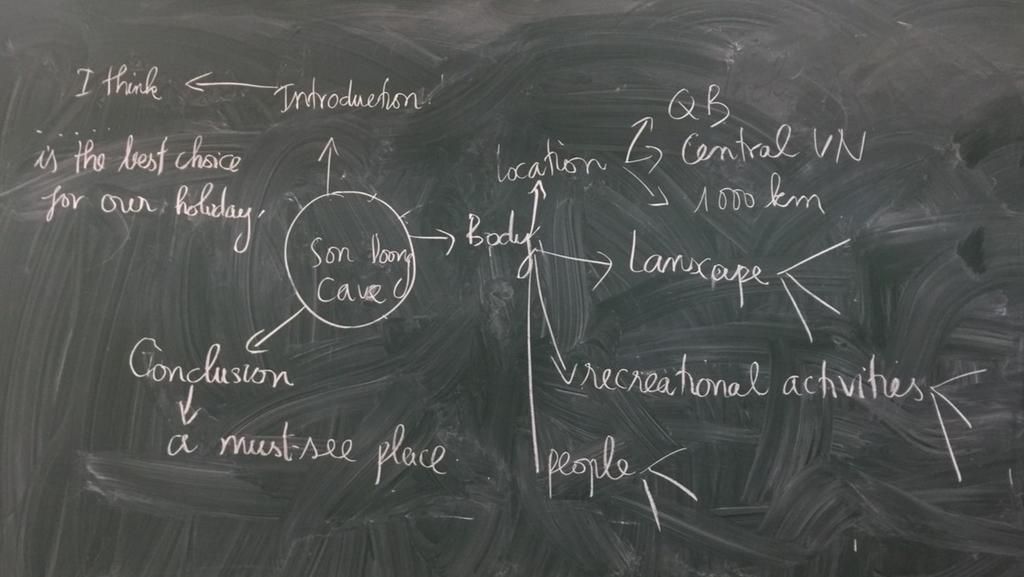 I think
.......
is the best choice
for our holiday.
Introduction
Son Doong
Cave
Conclusion
a must-see place
Body
location
QB
Central VN
1000 km
Lanscape
recreational activities
people